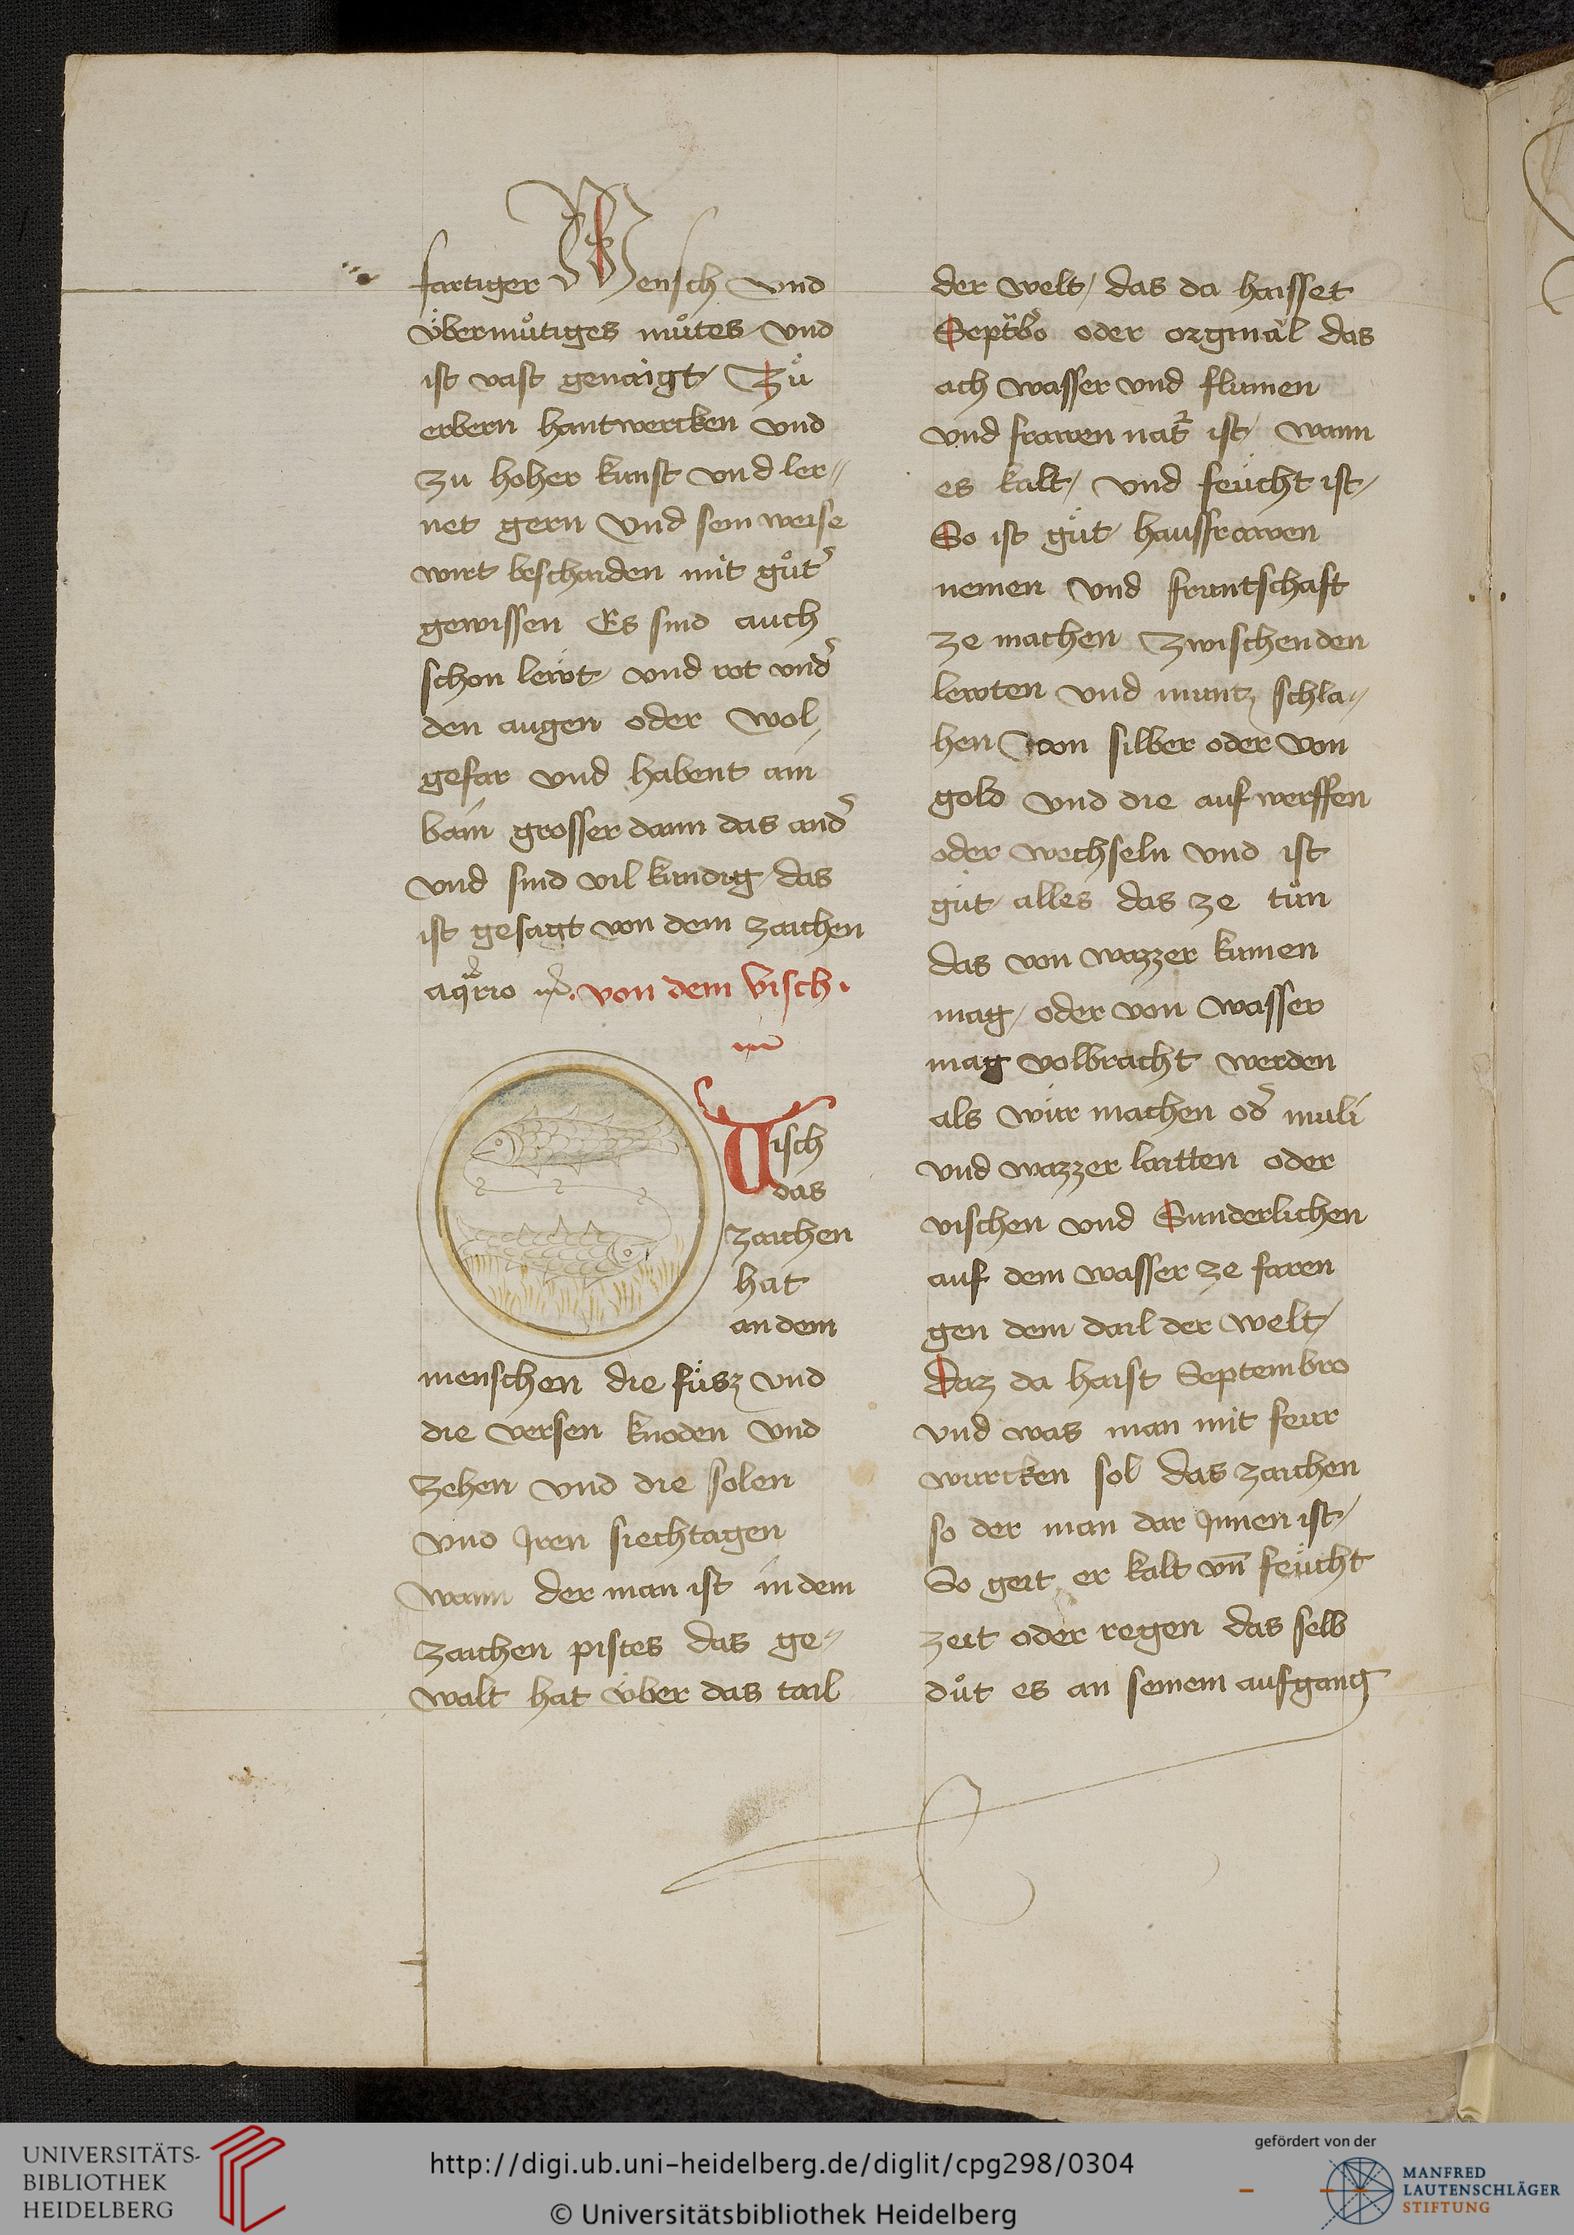 fartiger Mensch und
übermůtiges můtes und
ist vast genaigt Zů
erbern hantwercken und
zu hoher kunst und ler
net gern und sein weise
wirt beschaiden mit gůt
gewissen Es sind auch
schon lewt und rot und
den augen oder wol
gefar und habent ain
bain grosser dann das and
und sind vil kundig das
ist gesagt von dem zaichen
von dem visch
Visch
das
zaichen
hat
an dem
menschen die füsz und
die versen knoden und
zehen und die solen
und Iren siechtagen
wann der man ist in dem
zaichen pistes das ge
walt hat über das tail
der welt / das da haisset
oder orginal das
ach wasser und flumen
und frawen nat ist / wann
es kalt / und feücht ist /
So ist gůt hausfrawen
nemen und fruntschaft
ze machen zwischen den
lewten und muntz schla
hen von silber oder von
gold und die aufwerffen
oder wechseln und ist
gůt alles das ze tůn
das von wazzer kumen
mag / oder von wasser
mag volbracht werden
als wür machen od muli
und wazzer laitten oder
vischen und Sunderlichen
auf dem wasser ze faren
gen dem dail der welt /
Daz da haist Septembro
und was man mit feur
wurcken sol das zaichen
so der man dar Innen ist /
So geit er kalt vn̄ feücht
zeit oder regen das selb
důt es an seinem aufgang
UNIVERSITÄTS-
BIBLIOTHEK
HEIDELBERG
http://digi.ub.uni-heidelberg.de/diglit/cpg298/0304
© Universitätsbibliothek Heidelberg
gefördert von der
MANFRED
LAUTENSCHLÄGER
STIFTUNG